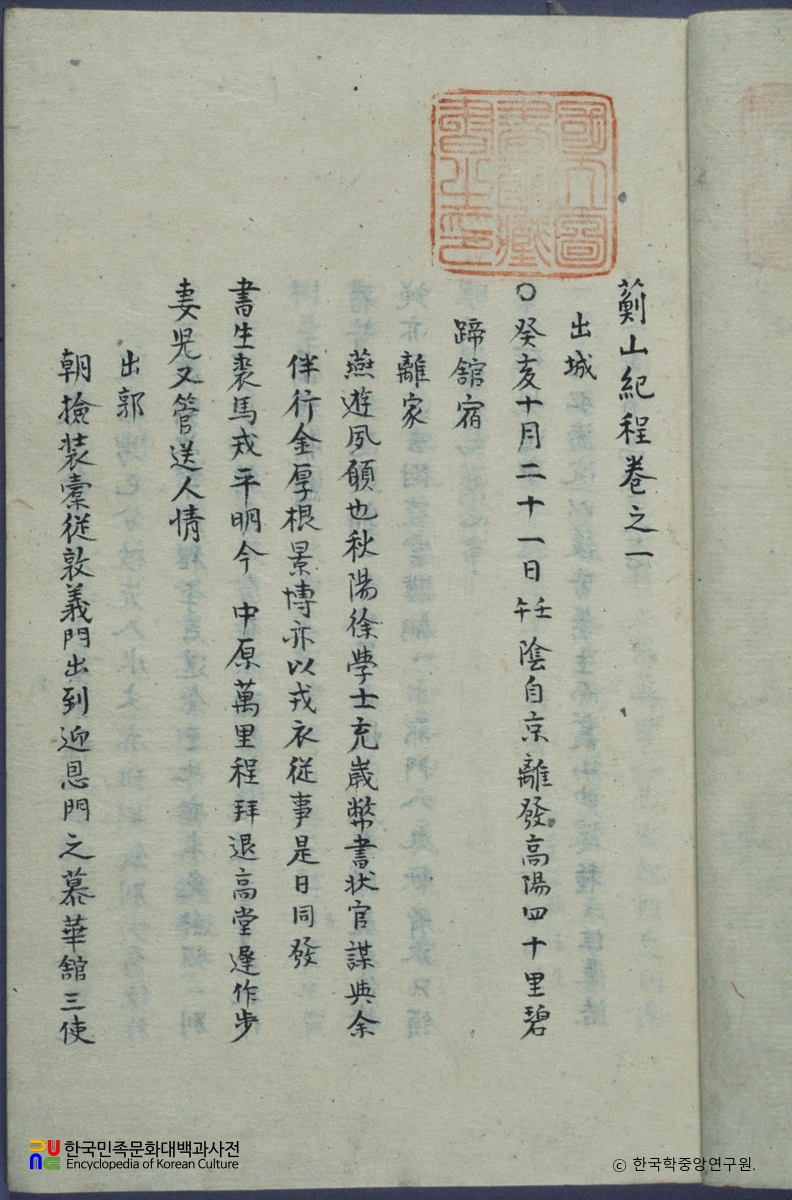 國立圖
書館藏
書之印
薊山紀程卷之一
出城
○癸亥十月二十一日壬午陰自京離發高陽四十里碧
蹄舘宿
離家
燕遊夙願也秋陽徐學士充歲幣書状官謀與余
伴行金厚根景博亦以戎衣從事是日同發
書生裘馬戎平明今 中原萬里程拜退高堂遲作步
妻児又管送人情
出郭
朝撿装橐從敦義門出到迎恩門之慕華舘三使
한국민족문화대백과사전
Encyclopedia of Korean Culture
ⓒ 한국학중앙연구원.